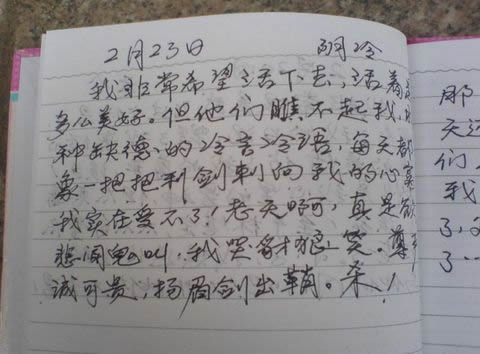 2月23日 阴冷
我非常希望活下去,活着是
多么美好。但他们瞧不起我,那
种缺德的冷言冷语,每天都
像一把把利剑刺向我的心窝
我实在受不了!老天啊,真是欲
悲闻鬼叫,我哭豺狼笑。尊严
诚可贵,扬眉剑出鞘。杀!
那
天
们
我
了,
了…